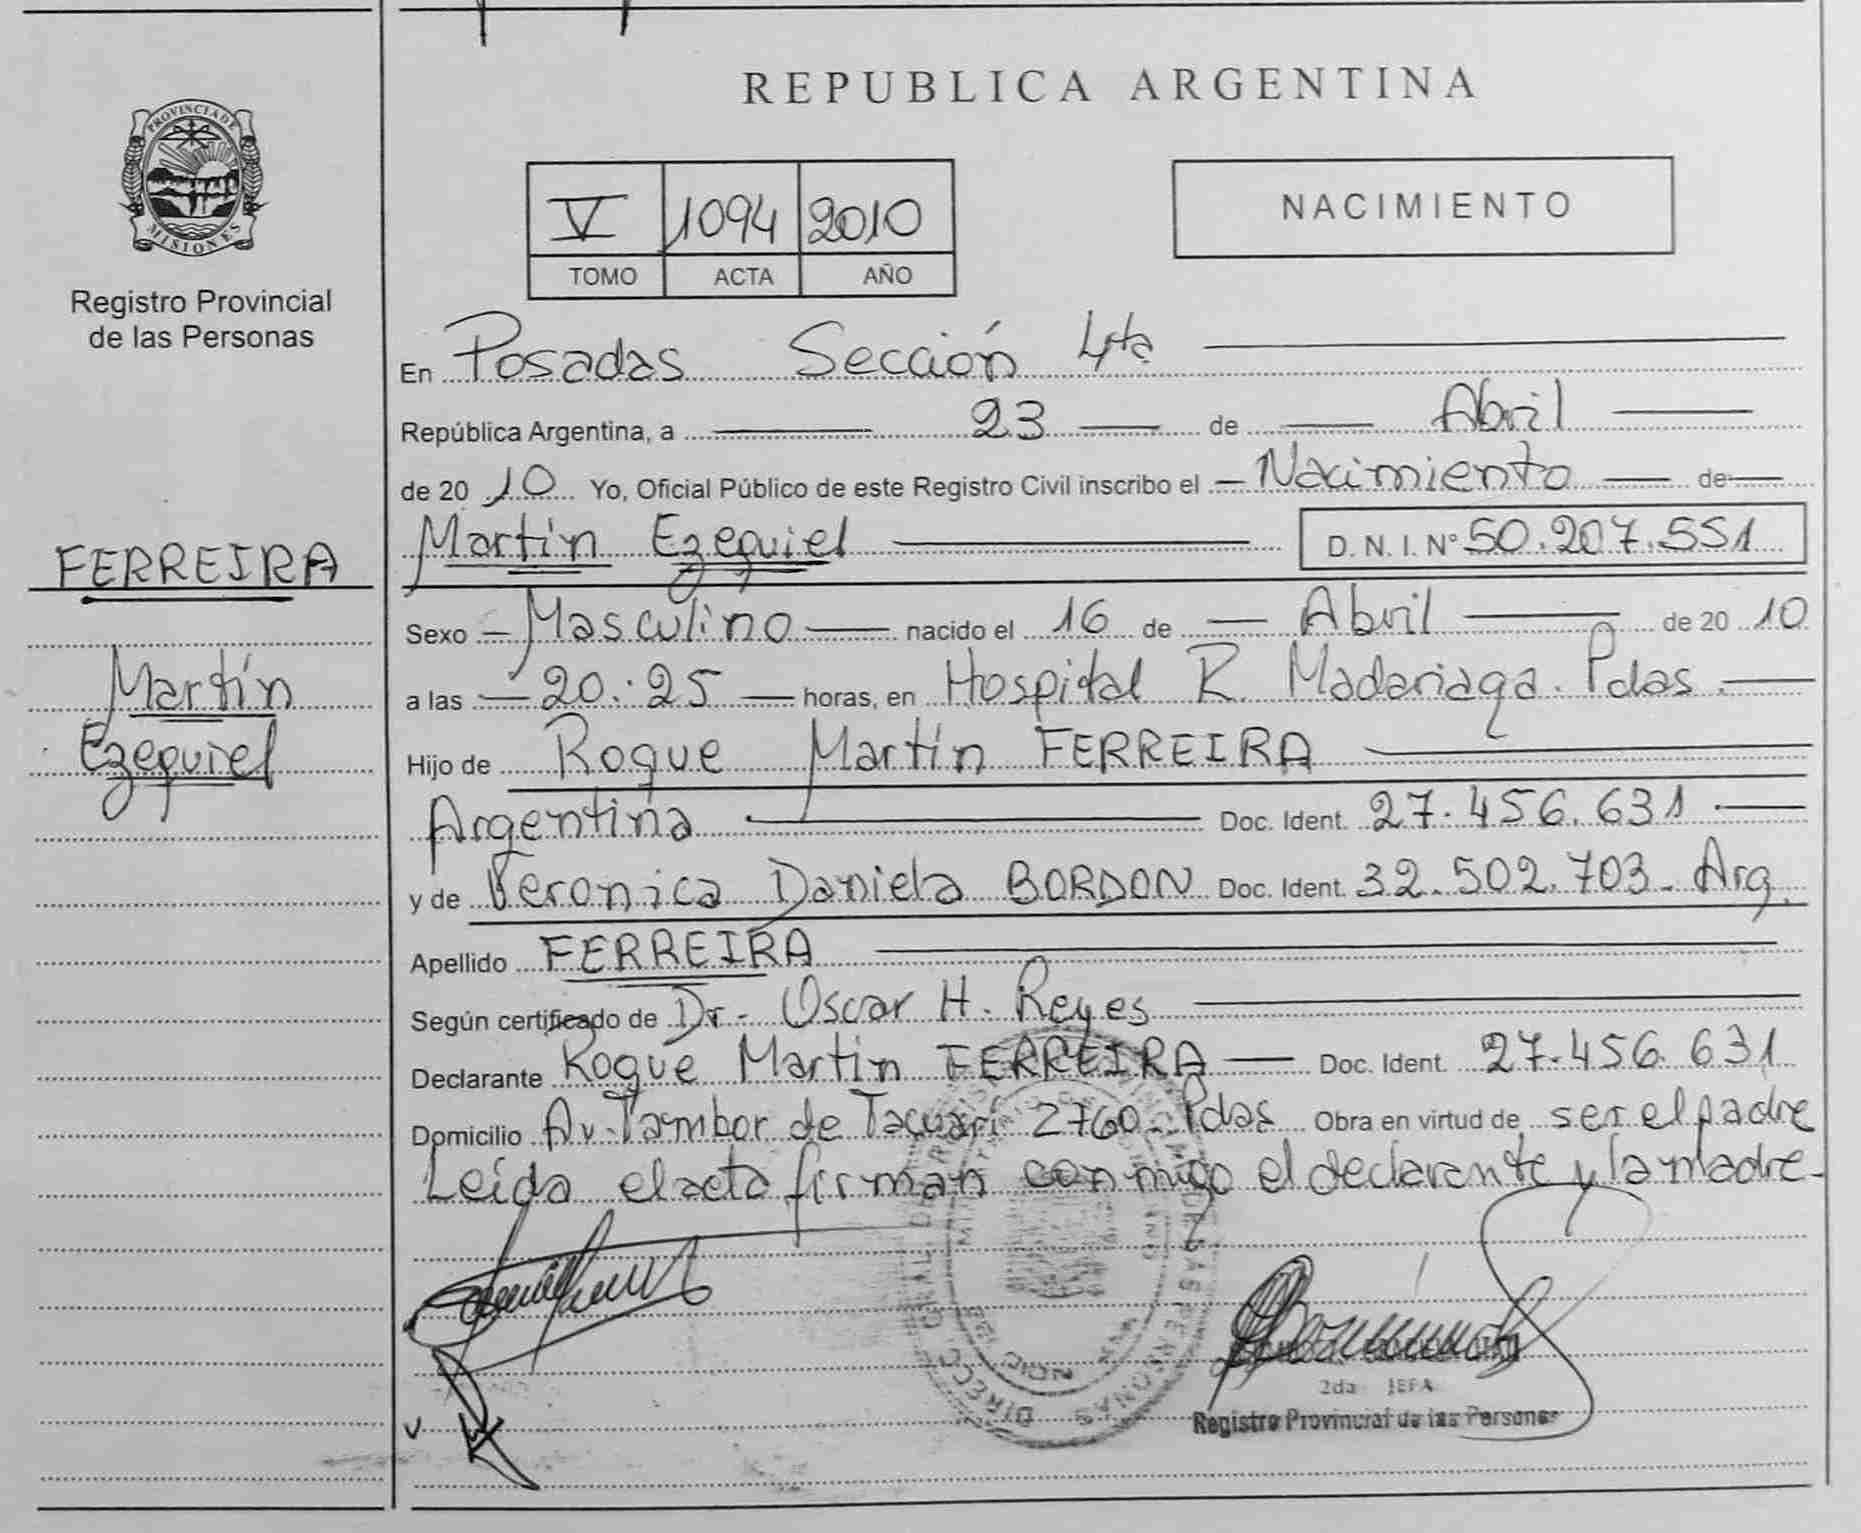 REPUBLICA ARGENTINA
PROVINCIA DE
MISIONES
Registro Provincial
de las Personas
V 1094 2010
TOMO ACTA AÑO
NACIMIENTO
En Posadas Sección 4ta
República Argentina, a 23 de Abril
de 2010 Yo, Oficial Público de este Registro Civil inscribo el Nacimiento de
Martín Ezequiel D.N.I. Nº 50.207.551
FERREIRA
Martín
Ezequiel
Sexo Masculino nacido el 16 de Abril de 2010
a las 20:25 horas, en Hospital R. Madariaga. Pdas.
Hijo de Roque Martín FERREIRA
Argentina Doc. Ident. 27.456.631
y de Veronica Daniela BORDON Doc. Ident. 32.502.703- Arg.
Apellido FERREIRA
Según certificado de Dr. Oscar H. Reyes
Declarante Roque Martin FERREIRA Doc. Ident. 27.456.631
Domicilio Av. Tambor de Tacuarí 2760- Pdas Obra en virtud de ser el padre
Leída el acta firman conmigo el declarante y la madre-
2da JEFA
Registro Provincial de las Personas